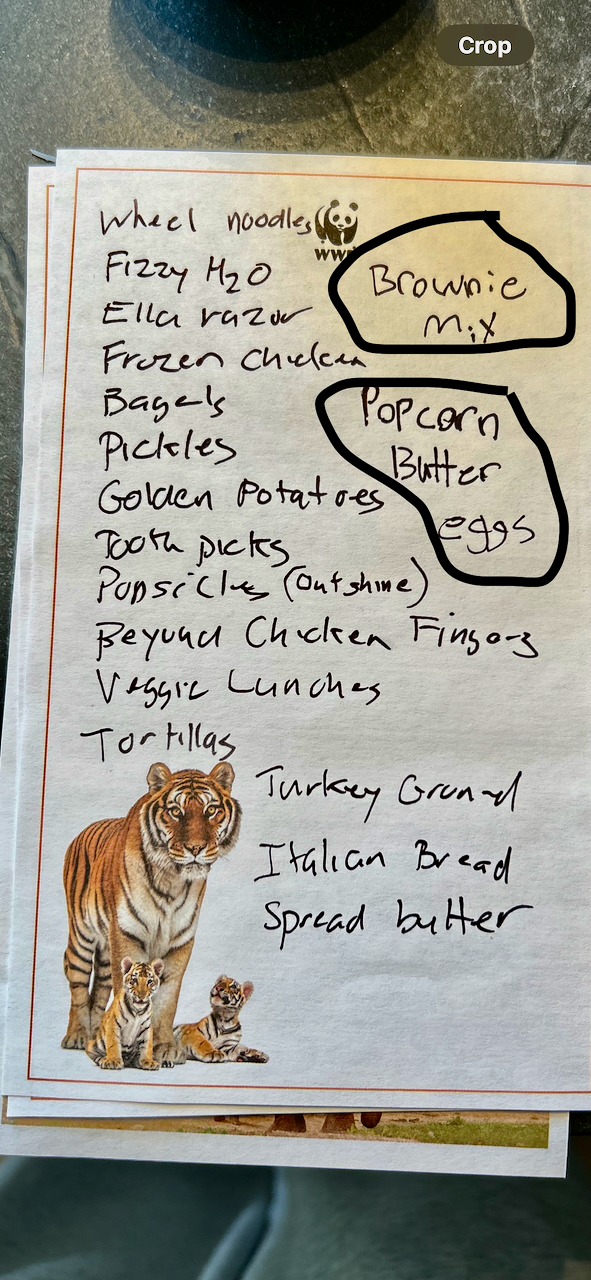 Crop
Wheel noodles
WWF
Fizzy H2O
Ella razor
Frozen chicken
Bagels
Pickles
Golden Potatoes
Tooth picks
Popsicles (Outshine)
Beyond Chicken Fingers
Veggie Lunches
Tortillas
Brownie
Mix
Popcorn
Butter
eggs
Turkey Ground
Italian Bread
Spread butter